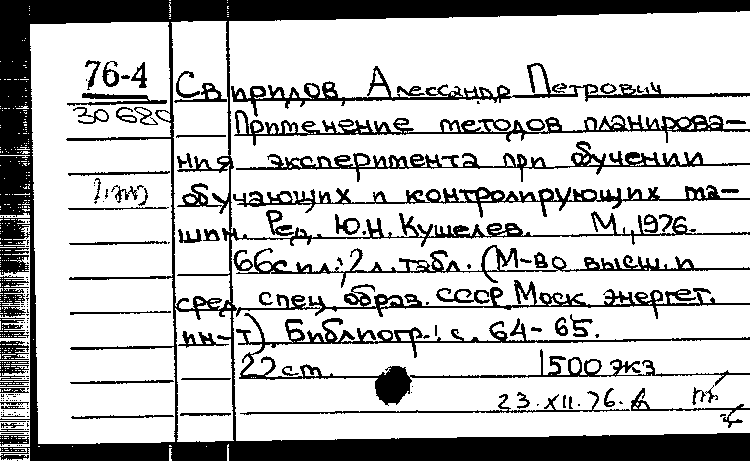 76-4
30680
Свиридов, Алессандр Петрович
Применение методов планирова-
ния эксперимента при обучении
обучающих и контролирующих ма-
шин. Ред. Ю.Н. Кушелев. М., 1976.
66с ил.; 2 л. табл. (М-во высш. и
сред. спец. образ. СССР. Моск. энергет.
ин-т). Библиогр.: с. 64-65.
22 см. 1500 экз
23.XII.76.